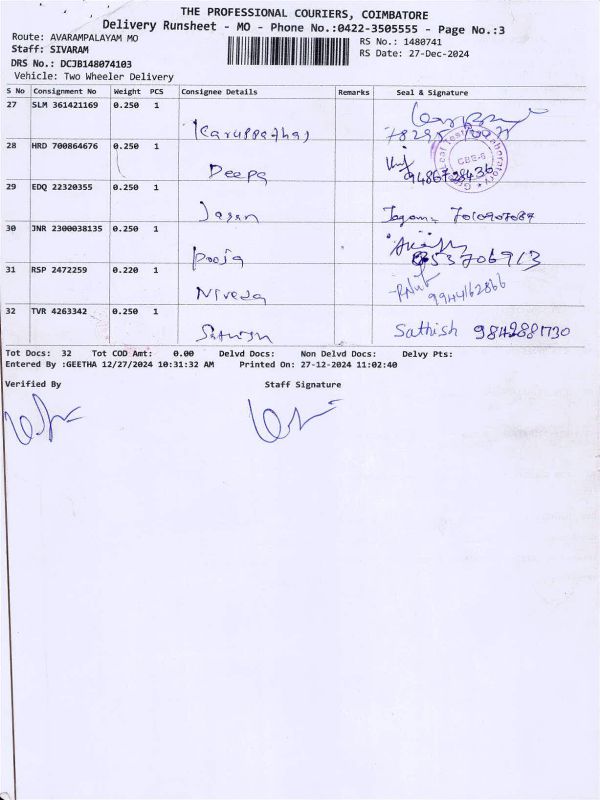 THE PROFESSIONAL COURIERS, COIMBATORE
Delivery Runsheet - MO - Phone No.:0422-3505555 - Page No.:3
Route: AVARAMPALAYAM MO
RS No.: 1480741
Staff: SIVARAM
RS Date: 27-Dec-2024
DRS No.: DCJB148074103
Vehicle: Two Wheeler Delivery
S No Consignment No Weight PCS Consignee Details Remarks Seal & Signature
27 SLM 361421169 0.250 1
28 HRD 700864676 0.250 1
Deepa
9486728436
CBE-6
29 EDQ 22320355 0.250 1
Jagan
7010907089
30 JNR 2300038135 0.250 1
Pooja
31 RSP 2472259 0.220 1
Niveda
9944162866
32 TVR 4263342 0.250 1
Sathish
Tot Docs: 32 Tot COD Amt: 0.00 Delvd Docs: Non Delvd Docs: Delvy Pts:
Entered By :GEETHA 12/27/2024 10:31:32 AM Printed On: 27-12-2024 11:02:40
Verified By Staff Signature